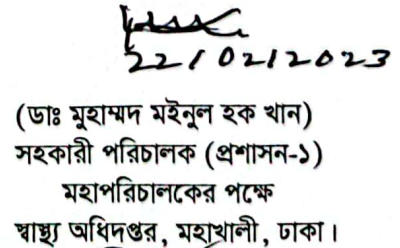 22/02/2023
(ডাঃ মুহাম্মদ মইনুল হক খান)
সহকারী পরিচালক (প্রশাসন-১)
মহাপরিচালকের পক্ষে
স্বাস্থ্য অধিদপ্তর, মহাখালী, ঢাকা।